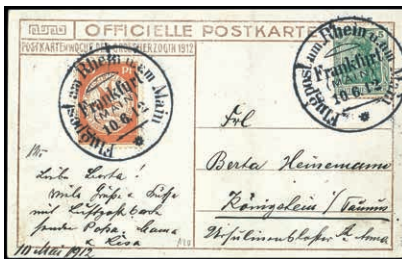 OFFICIELLE POSTKARTE
POSTKARTENWOCHE DER GROSSHERZOGIN 1912
Flugpost am Rhein u. am Main
Frankfurt
(MAIN)
10.6.12
Flugpost am Rhein u. am Main
Frankfurt
(MAIN)
10.6.12
5
Frl
Berta Heinemann
Königstein i/Taunus
Ursulinenkloster St Anna
Liebe Berta!
viele Grüße u Küsse
mit Luftpost
senden Papa, Mama
u Lisa
10 Mai 1912